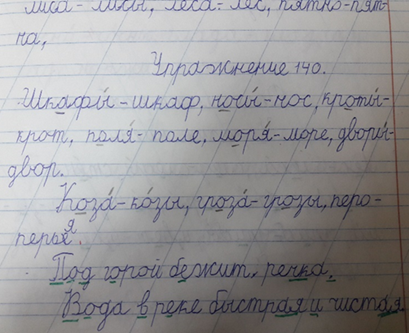 лиса - лисы, леса - лес, пятно-пят-
на,
Упражнение 140.
Шкафы́ - шкаф, носы́ - нос, кроты́-
крот, поля́ - поле, моря́ - море, дворы́-
двор.
Коза́ - ко́зы, гроза́ - грозы, перо-
перья.
Под горой бежит речка.
Вода в реке быстрая и чистая